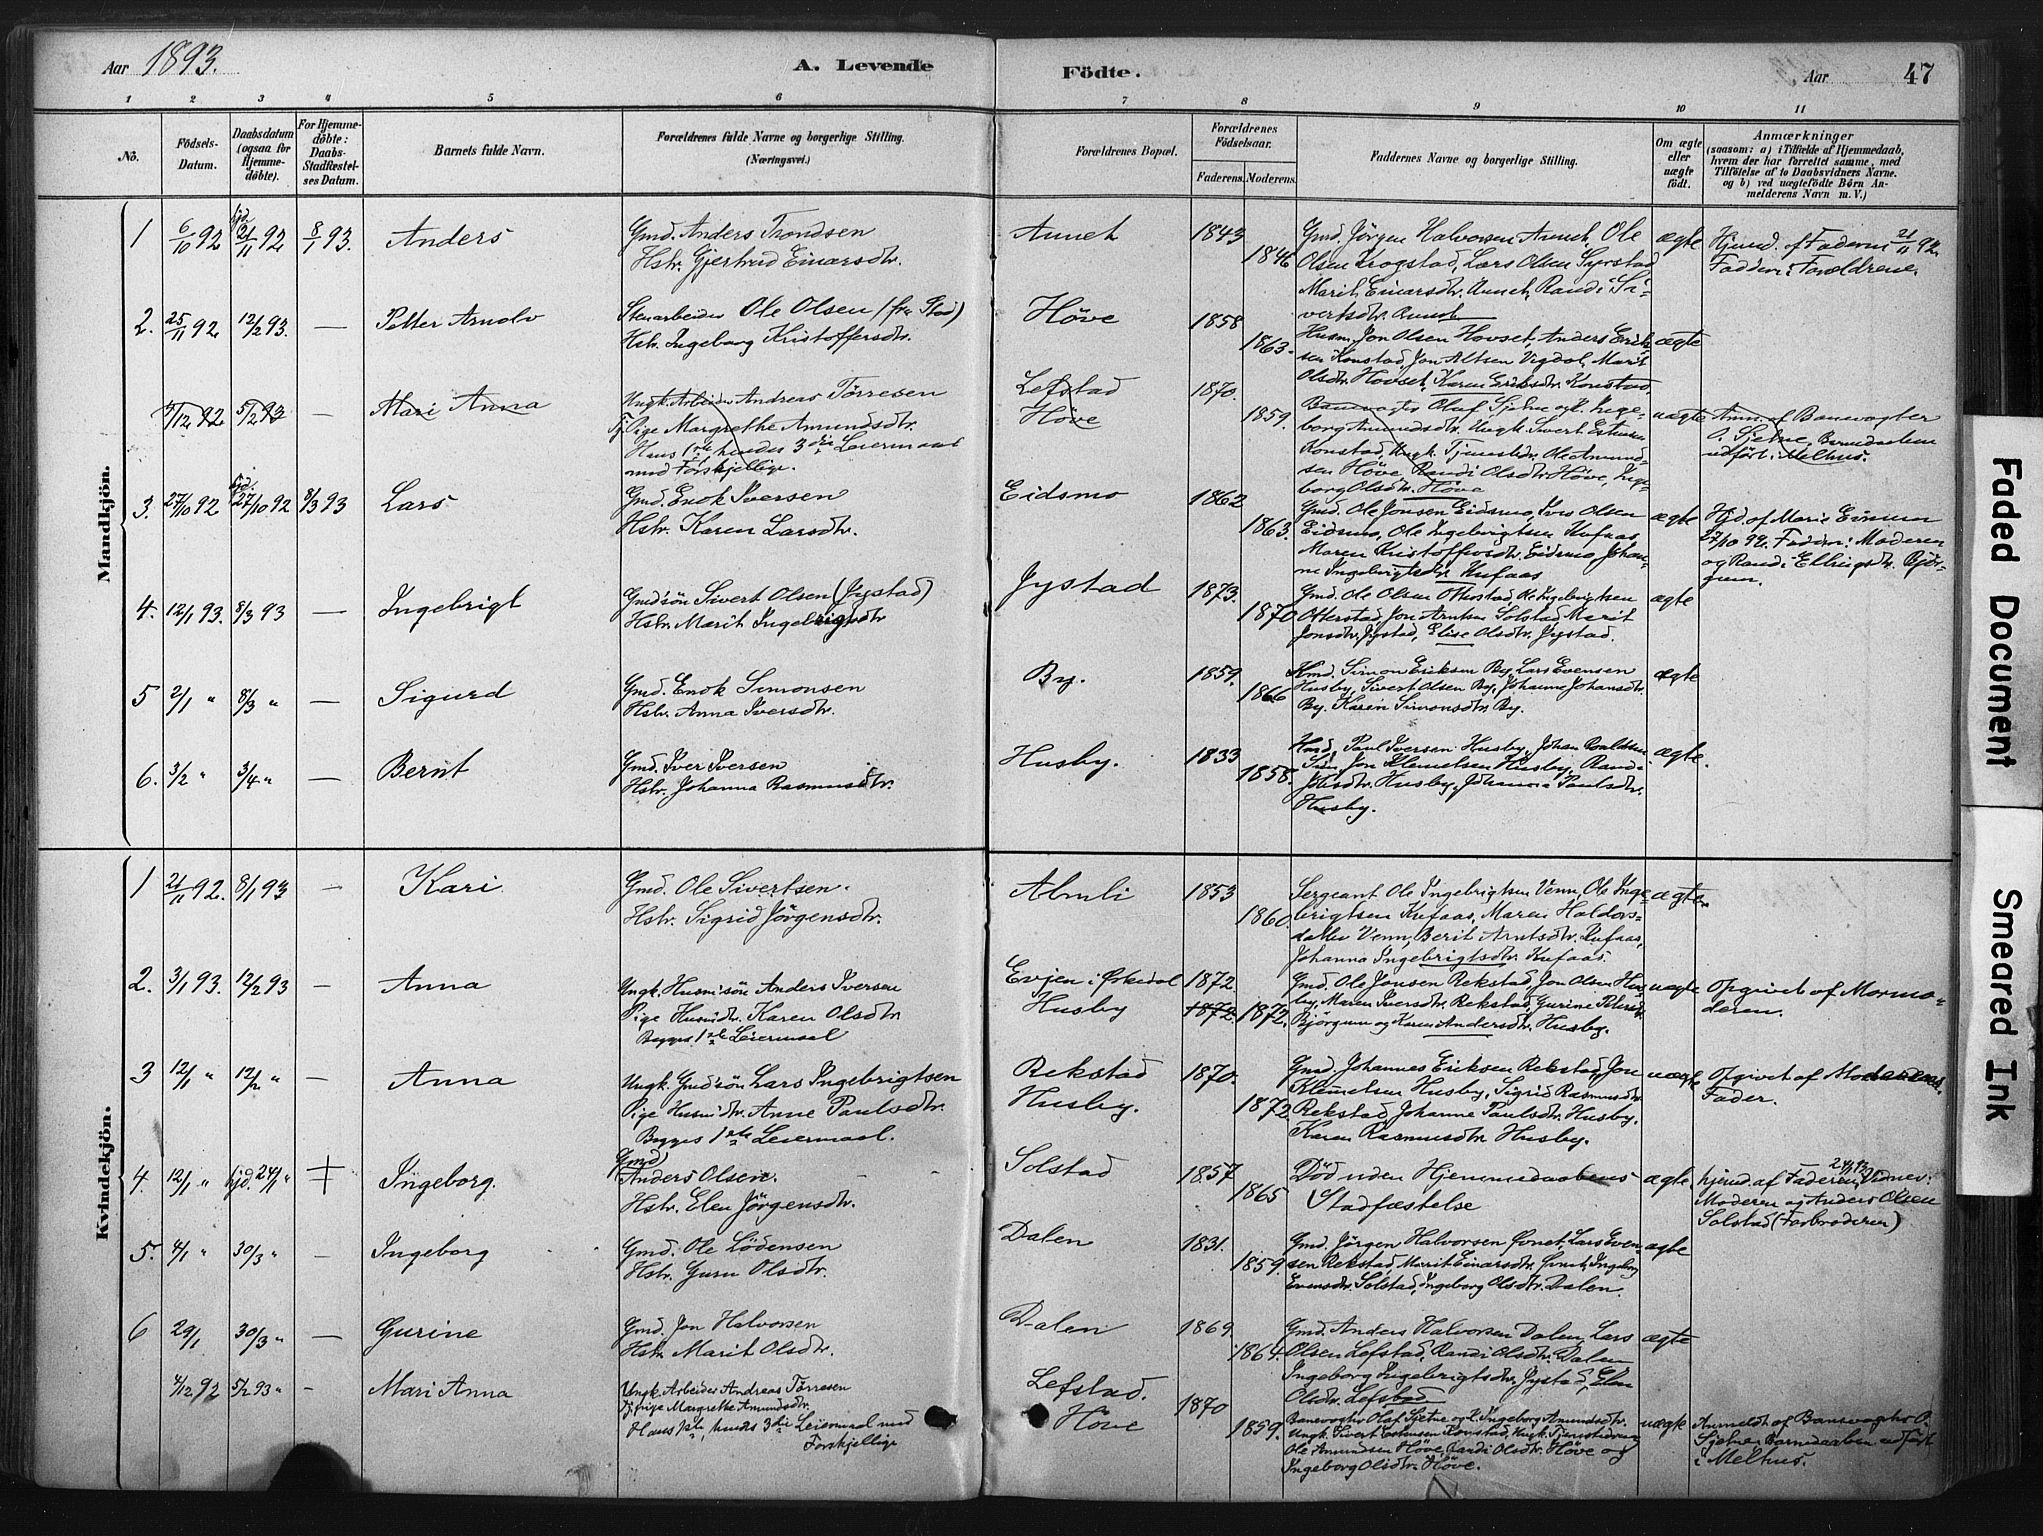 Aar 1893.
A. Levende Födte.
Aar 47
1 2 3 4 5 6 7 8 9 10 11
No.
Födsels-
Datum.
Daabsdatum
(ogsaa for
Hjemme-
døbte).
For Hjemme-
döbte:
Daabs-
Stadfæstel-
ses Datum.
Barnets fulde Navn.
Forældrenes fulde Navne og borgerlige Stilling.
(Næringsvei.)
Forældrenes Bopæl.
Forældrenes
Födselsaar.
Faderens. Moderens.
Faddernes Navne og borgerlige Stilling.
Om ægte
eller
uægte
födt.
Anmærkninger
(saasom: a) i Tilfælde af Hjemmedaab,
hvem der har forrettet samme, med
Tilföielse af to Daabsvidners Navne.
og b) ved uægtefödte Börn An-
melderens Navn m. V.)
Mandkjön.
1 6/10 92 hjd. 21/11 92 8/1 93. Anders
Gmd. Anders Trondsen
Hstr. Gjertrud Einarsdtr.
Aunet 1843 1846
Gmd. Jörgen Halvorsen Aunet, Ole
Olsen Krogstad, Lars Olsen
Marit Einarsdtr. Aunet, Randi Si-
vertsdtr. Aunet
ægte
Hjmd. af Faderen 21/11 92.
Faddere: Forældrene.
2. 25/11 92 12/2 93. — Petter Arnolv
Stenarbeider Ole Olsen (fra Stad)
Hstr. Ingeborg Kristoffersdtr.
Höve 1858 1863.
Husm. Jon Olsen Hovset, Anders Erik-
sen Konstad, Jon Altsen Vigdal, Marit
Olsdtr. Hovset, Karen Eriksdtr. Konstad.
ægte
4/12 92 5/2 93 — Mari Anna
Ungk. Arbeider Andreas Törresen
Tj. Pige Margrethe Amundsdtr.
Hans 1ste hendes 3die Leiermaal
med Forskjellige.
Lefstad
Höve
1870. 1859.
Banevogter Olaf Sjetne og H. Inge-
borg Amundsdtr. Ungk. Sivert Estensen
Konstad, Ungk. Tjenestdr. Ole Amund-
sen Höve, Randi Olsdtr. Höve, Inge-
borg Olsdtr. Höve
uægte
Anm. af Banevogter
O. Sjetne, Barnedaaben
udfört i Melhus.
3. 27/10 92 hjd. 27/10 92 8/3 93 Lars
Gmd. Enok Iversen
Hstr. Karen Larsdtr.
Eidsmo 1862 1863.
Gmd. Ole Jonsen Eidsmo, Iver Olsen
Eidsmo, Ole Ingebrigtsen Kufaas
Maren Kristoffersdtr. Eidsmo, Johan-
ne Ingebrigtsdtr. Kufaas
ægte
Hjd. af Marie
27/10 92. Faddere: Moderen
og Randi Ellingsdtr. Björ-
gum.
4. 12/1 93. 8/3 93 — Ingebrigt
Gmdsön Sivert Olsen (Jystad)
Hstr. Marit Ingebrigtsdtr
Jystad 1873. 1870
Gmd. Ole Olsen Otterstad, Ole Ingebrigtsen
Otterstad, Jon Arntsen Solstad, Marit
Jonsdtr. Jystad, Elise Olsdtr. Jystad.
ægte
5 2/1 " 8/3 " — Sigurd
Gmd. Enok Simonsen
Hstr. Anna Iversdtr.
By. 1859. 1866
Hmd. Simon Eriksen By, Lars Evensen
Husby, Sivert Olsen By, Johanne Johansdtr.
By, Karen Simonsdtr. By.
ægte
6. 3/2 " 3/4 " — Bernt
Gmd. Iver Iversen
Hstr. Johanna Rasmusdtr.
Husby. 1833 1858.
Hmd. Paul Iversen Husby, Johan
Jon Klemetsen Husby, Randi
Johsdtr. Husby, Johanna Paulsdtr.
Husby.
ægte.
Kvindekjön.
1 21/11 92. 8/1 93 — Kari
Gmd. Ole Sivertsen.
Hstr. Sigrid Jörgensdtr.
Almli 1853 1860.
Sergeant Ole Ingebrigtsen Venn, Ole Inge-
brigtsen Kufaas, Maren Haldors-
datter Venn, Berit Arntsdtr. Kufaas,
Johanna Ingebrigtsdtr. Kufaas.
ægte.
2. 3/1 93. 12/2 93 — Anna
Ungk. Husm.sön Anders Iversen
Pige Husmdtr. Karen Olsdtr.
Begges 1ste Leiermaal
Evjen i Orkedal
Husby
1872. 1872. 1872.
Gmd. Ole Jonsen Rekstad, Jon Olsen Hus-
by, Maren Iversdtr. Rekstad, Gurine Petersdt.
Björgum og Karen Andersdtr. Husby.
uægte
Opgivet af Mormo-
deren.
3 12/1 " 12/2 " — Anna
Ungk. Gmdsön Lars Ingebrigtsen
Pige Husmdtr. Anne Paulsdtr.
Begges 1ste Leiermaal.
Rekstad
Husby.
1870. 1872
Gmd. Johannes Eriksen Rekstad, Jon
Klemetsen Husby, Sigrid Rasmusdtr.
Rekstad, Johanne Paulsdtr. Husby.
Karen Rasmusdtr. Husby.
uægte
Opgivet af Moderens
Fader.
4. 12/1 " hjd. 24/1 " ‡ Ingeborg.
Gmd
Anders Olsen.
Hstr. Elen Jörgensdtr.
Solstad 1857 1865
Död uden Hjemmedaabens
Stadfæstelse
ægte.
hjemd. af Faderen 24/1 93, Vidner:
Moderen og Anders Olsen
Solstad (Farbroderen)
5. 4/1 " 30/3 " — Ingeborg
Gmd. Ole Lödensen
Hstr. Guru Olsdtr.
Dalen 1831. 1859.
Gmd. Jörgen Halvorsen Aunet, Lars Even-
sen Rekstad, Marit Einarsdtr. Aunet, Ingeborg
Evensdtr. Solstad, Ingeborg Olsdtr. Dalen.
ægte
6 29/1 30/3 " — Gurine
Gmd. Jon Halvorsen
Hstr. Marit Olsdtr.
Dalen 1869. 1864.
Gmd. Anders Halvorsen Dalen, Lars
Olsen Lefstad, Randi Olsdtr. Dalen
Ingeborg Ingebrigtsdtr. Jystad, Elen
Olsdtr. Lefstad
ægte
4/12 92 5/2 93 " — Mari Anna
Ungk. Arbeider Andreas Törresen
Tj. pige Margrethe Amundsdtr.
Hans 1ste hendes 3die Leiermaal med
Forskjellige
Lefstad.
Höve
1870 1859.
Banevogter Olaf Sjetne og H. Ingeborg Amundsdtr.
Ungk. Sivert Estensen Konstad, Ungk. Tjenestedreng
Ole Amundsen Höve, Randi Olsdtr. Höve og
Ingeborg Olsdtr. Höve.
uægte
Anmeldt af Banevogter O.
Sjetne, Barnedaaben udfört
i Melhus.
Faded Document
Smeared Ink